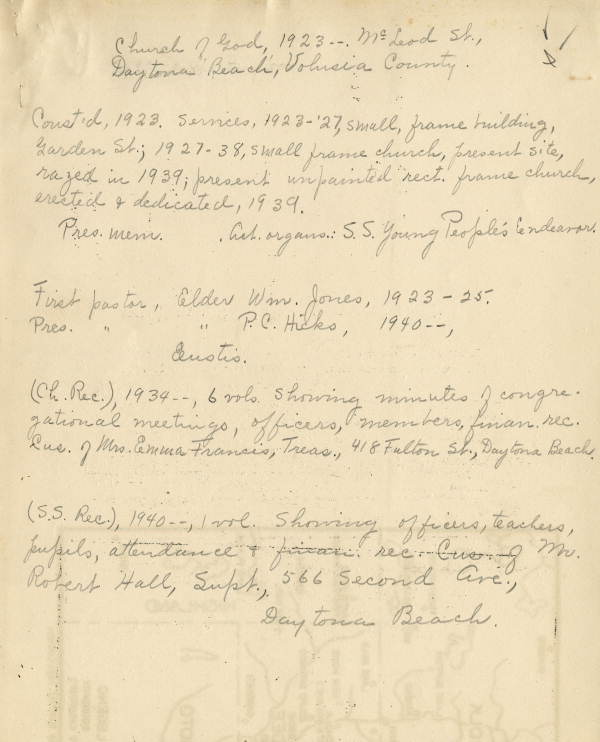 Church of God, 1923--. McLeod St.,
Daytona Beach, Volusia County.
Const'd, 1923. Services, 1923-'27, small, frame building,
Garden St.; 1927-38, small frame church, present site,
razed in 1939; present unpainted rect. frame church,
erected & dedicated, 1939.
Pres. mem. . Act. organs.: S.S. Young People's Endeavor.
First pastor, Elder Wm. Jones, 1923-25.
Pres. " " P.C. Hicks, 1940--,
Eustis.
(Ch. Rec.), 1934--, 6 vols. Showing minutes of congre-
gational meetings, officers, members, finan. rec.
Cus. of Mrs. Emma Francis, Treas., 418 Fulton St., Daytona Beach.
(S.S. Rec.), 1940--, 1 vol. Showing officers, teachers,
pupils, attendance & finan. rec. Cus. of Mr.
Robert Hall, Supt., 566 Second Ave.,
Daytona Beach.